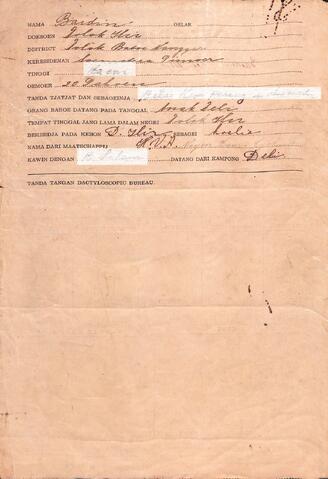 NAMA Bardin GELAR
DOEKOEN Dolok Ilir
DISTRICT Dolok Batoe Nanggar
KERESIDENAN Soematera Timoer
TINGGI
OEMOER 22 Tahoen
TANDA TJATJAT DAN SEBAGEINJA
ORANG BAROE DATANG PADA TANGGAL Anak Deli
TEMPAT TINGGAL JANG LAMA DALAM NEGRI Dolok Ilir
BEKERDJA PADA KEBON D. Ilir SEBAGAI Koelie
NAMA DARI MAATSCHAPPIJ H.V.A.
KAWIN DENGAN DATANG DARI KAMPONG Deli
TANDA TANGAN DACTYLOSCOPIC BUREAU.